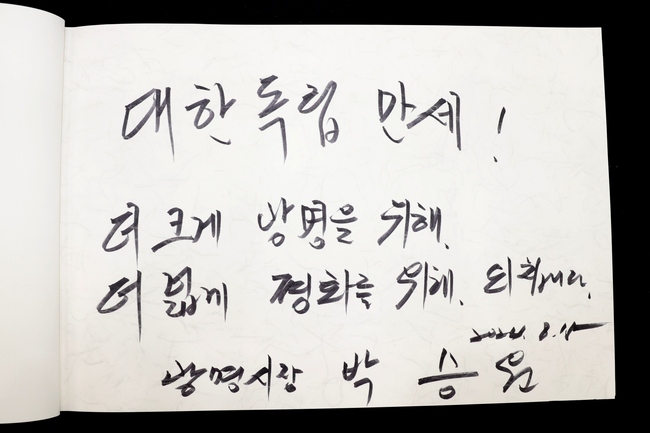 대한독립 만세!
더 크게 광명을 위해,
더 넓게 평화를 위해, 외칩니다.
2024. 8. 15
광명시장 박 승 원